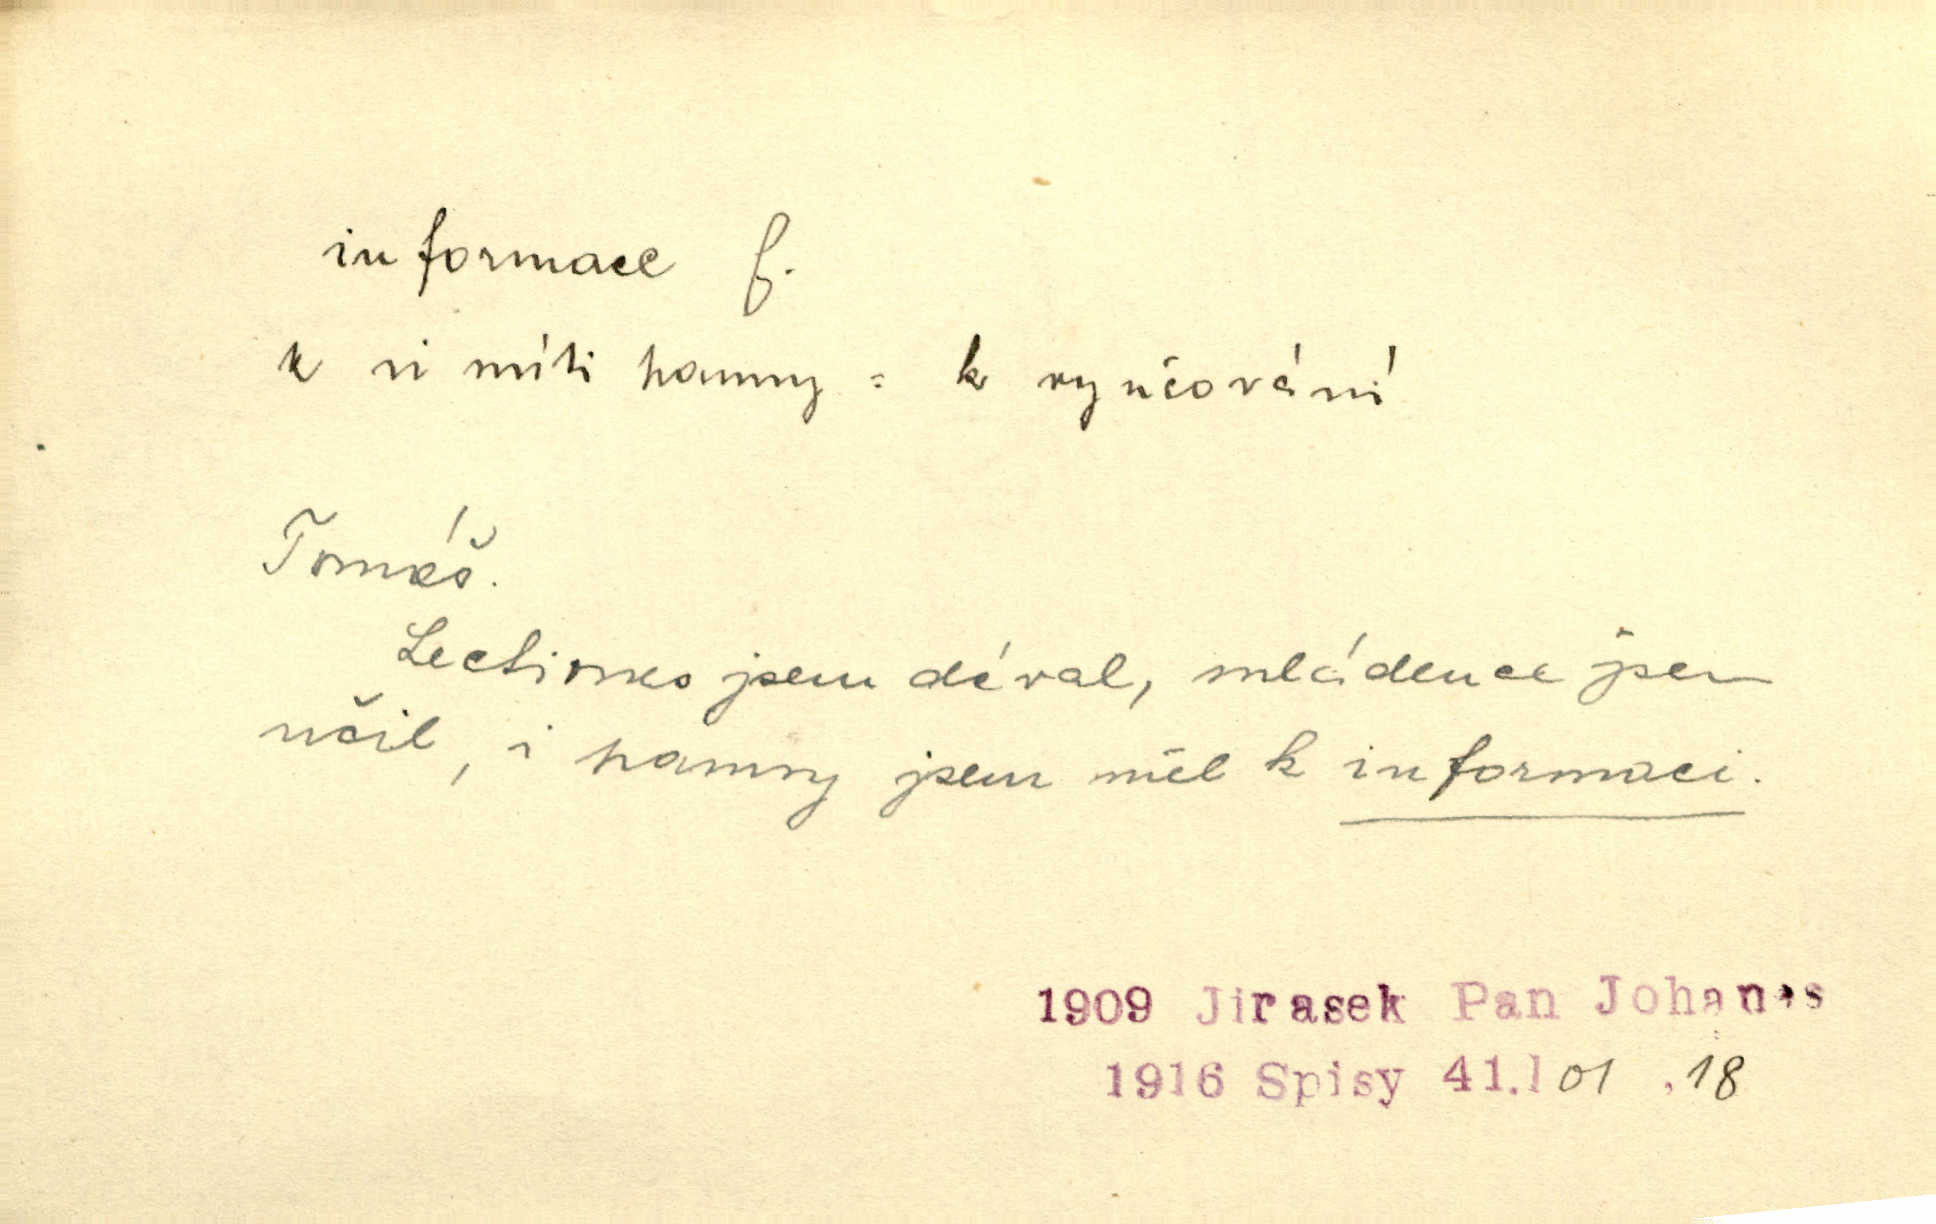 informace f.
k ní míti panny = k vyučování
Tomáš.
Lectiones jsem dával, mládence jsem
učil, i panny jsem měl k informaci.
1909 Jirasek Pan Johanes
1916 Spisy 41.101 ,18